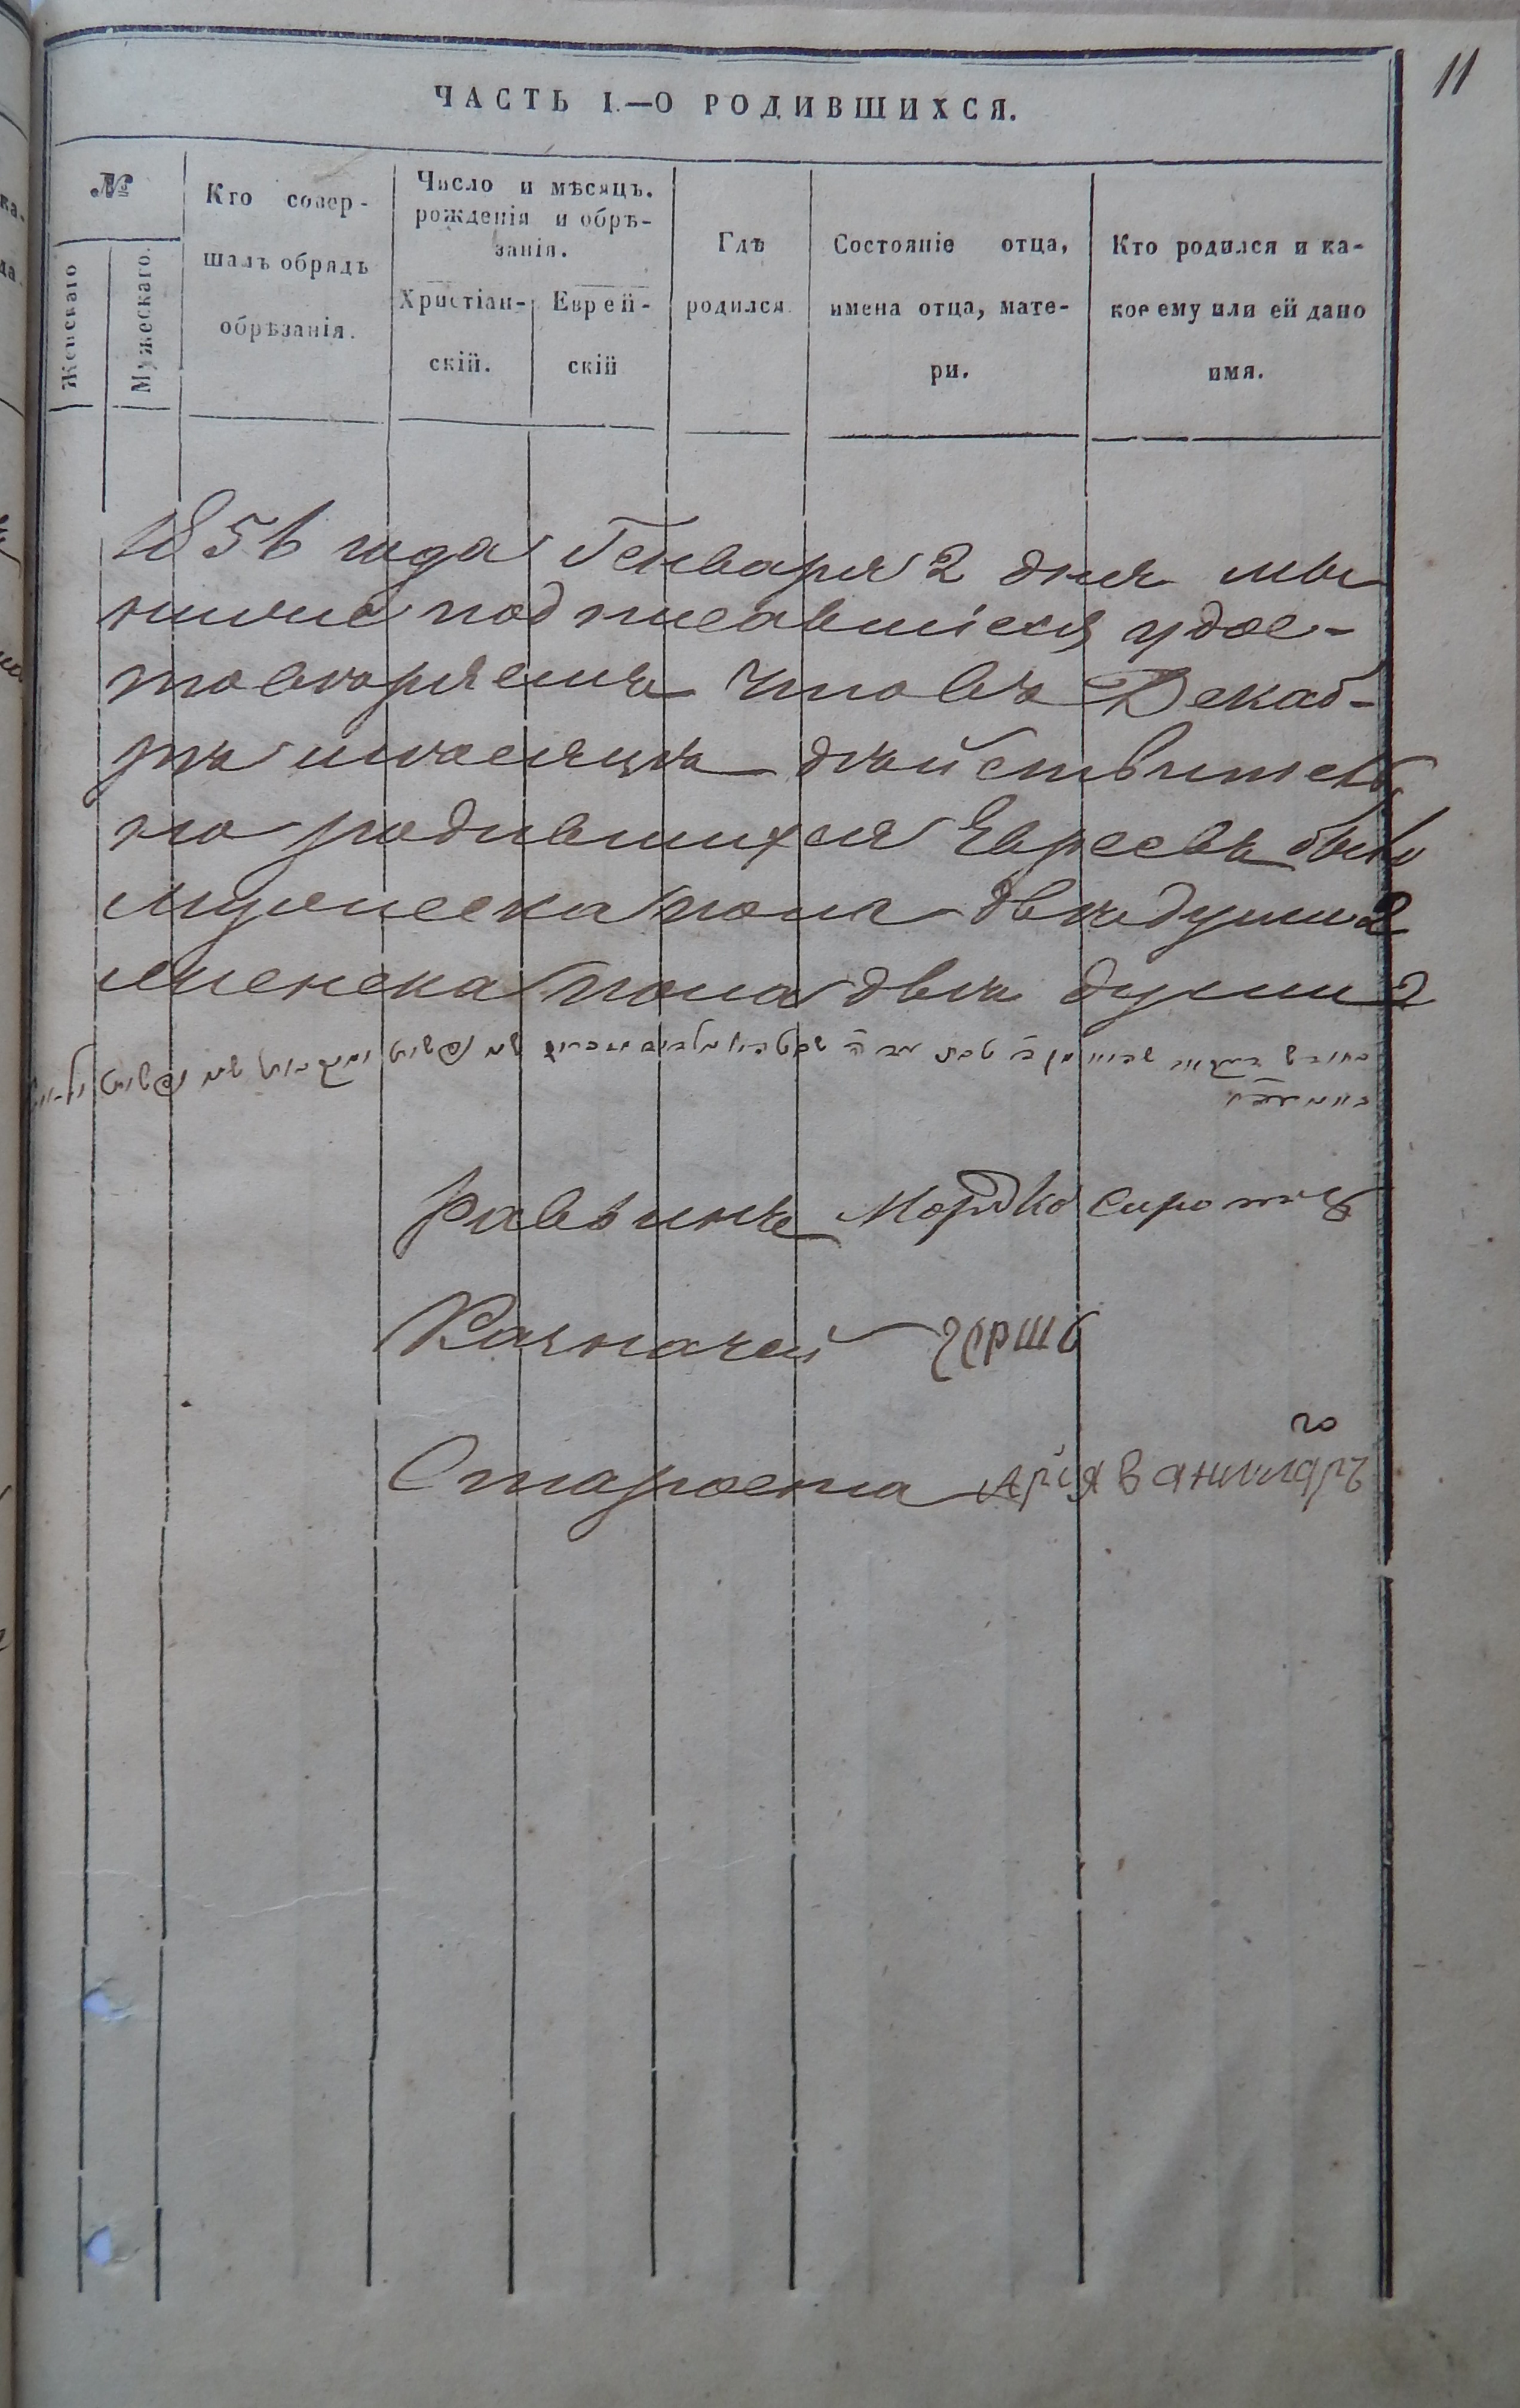 11
ЧАСТЬ I.—О РОДИВШИХСЯ.
№
Женскаго
Мужескаго.
Кто совер-
шалъ обрядъ
обрѣзанія.
Число и мѣсяцъ.
рожденія и обрѣ-
занія.
Христіан-
скій.
Еврей-
скій
Гдѣ
родился.
Состояніе отца,
имена отца, мате-
ри.
Кто родился и ка-
кое ему или ей дано
имя.
1856 года Генваря 2 дня мы
ниже подписавшіеся удос-
товѣряемъ что въ Декаб-
рѣ мѣсяцѣ дѣйствитель
но родившихся Евреевъ было
мужеска пола двѣ души 2
женска пола двѣ души 2
Раввинъ Мордко
Казначей Гершъ
Староста